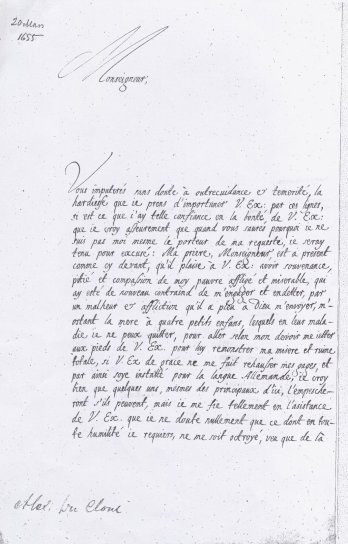 20 Mars
1655
Monseigneur,
Vous imputerés sans doute à outrecuidance & temerité, la
hardiesse que ie prens d'importuner V. Ex: par ces lignes,
si est ce que i'ay telle confiance en la bonté de V. Ex:
que ie croy asseurement que quand vous saurés pourquoy ie ne
suis pas moi mesme le porteur de ma requeste, ie seray
tenu pour excusé: Ma prière, Monseigneur, est à present
comme cy devant, qu'il plaise à V. Ex: avoir souvenance,
pitié et compasion de moy pauvre affligé et miserable, qui
ay esté de nouveau contraind de m'engager et endetter, par
un malheur & affliction qu'il a pleu à Dieu m'envoyer, m'
ostant la mere à quatre petits enfans, lesquels en leur mala-
die ie ne peux quitter, pour aller selon mon devoir me ietter
aux pieds de V. Ex. pour luy remonstrer ma misere et ruine
totale, si V. Ex de grace ne me fait rehausser mes gages, et
par ainsi soye installé pour la langue Allemande; ie croy
bien que quelques uns, mesmes des principaux d'ici, l'empesche-
ront s'ils peuvent, mais ie me fie tellement en l'asistance
de V. Ex. que ie ne doute nullement que ce dont en tou-
te humilité ie requiers, ne me soit octroyé, veu que de là